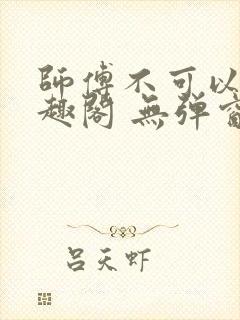 師傅不可以
趣閣 無弹窗
吕天虾